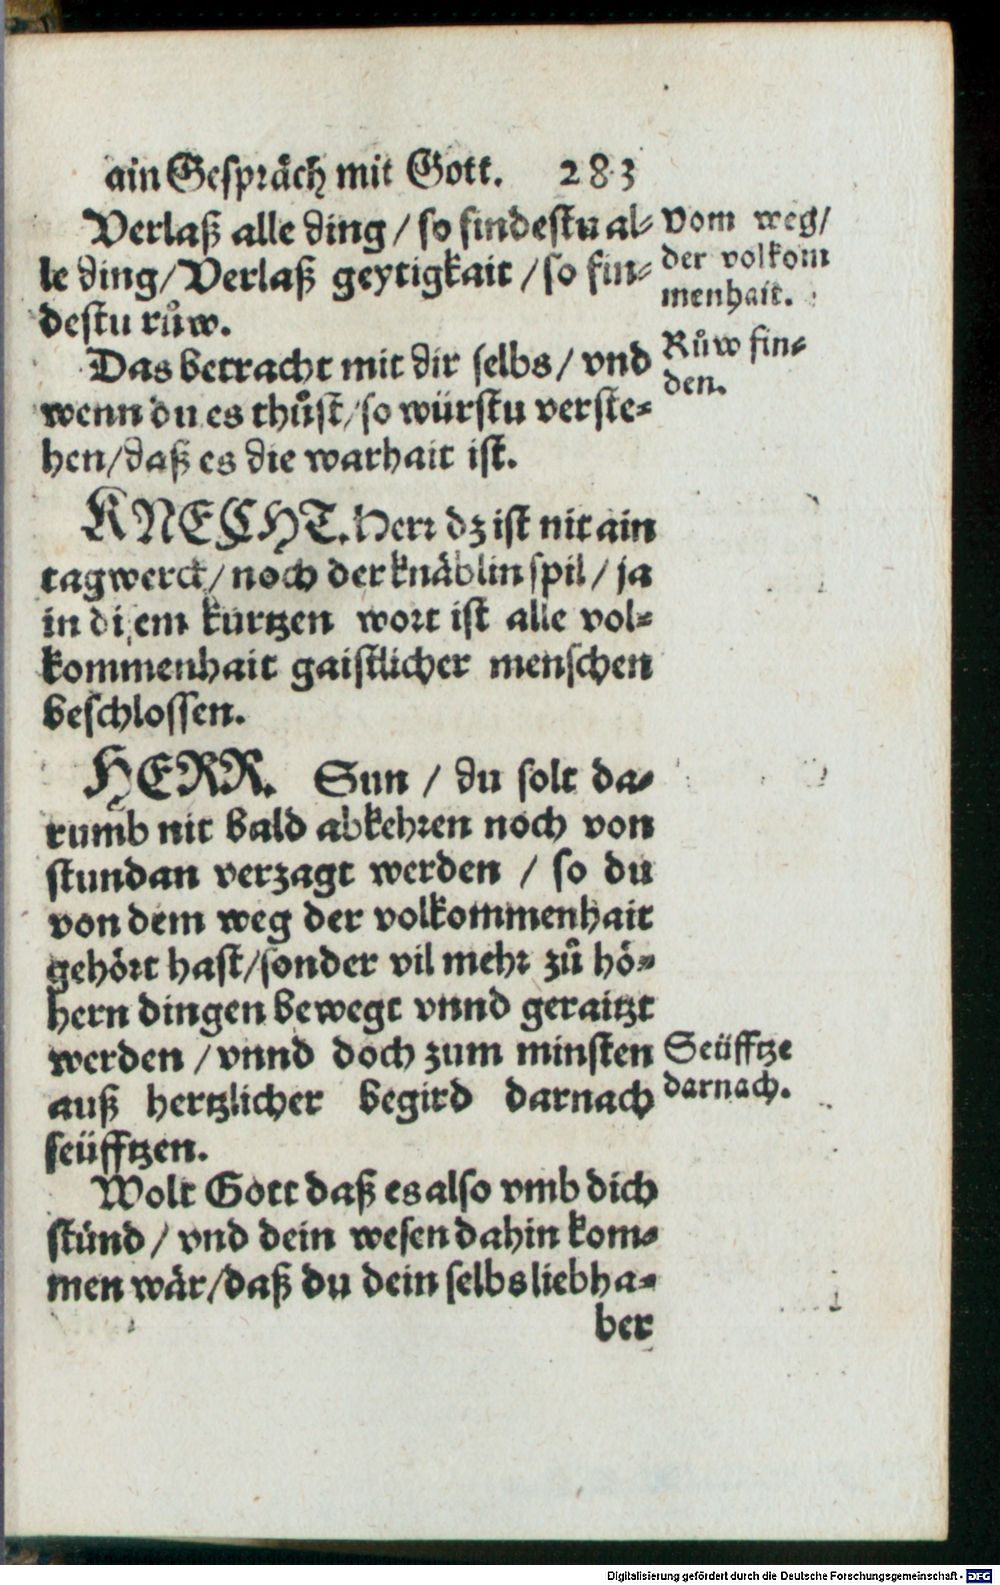 ain Gespräch mit Gott. 283
Verlaß alle ding / so findestu al⸗
le ding / Verlaß geytigkait / so fin⸗
destu růw.
Vom weg /
der volkom
menhait.
Das betracht mit dir selbs / vnd
wenn du es thůst / so würstu verste⸗
hen / daß es die warhait ist.
Růw fin⸗
den.
KNECHT. Herr dz ist nit ain
tagwerck / noch der knäblin spil / ja
in disem kurtzen wort ist alle vol⸗
kommenhait gaistlicher menschen
beschlossen.
HERR. Sun / du solt da⸗
rumb nit bald abkehren noch von
stundan verzagt werden / so du
von dem weg der volkommenhait
gehört hast / sonder vil mehr zů hö⸗
hern dingen bewegt vnnd geraitzt
werden / vnnd doch zum minsten
auß hertzlicher begird darnach
seüfftzen.
Seüfftze
darnach.
Wolt Gott daß es also vmb dich
stünd / vnd dein wesen dahin kom⸗
men wär / daß du dein selbs liebha⸗
ber
Digitalisierung gefördert durch die Deutsche Forschungsgemeinschaft - DFG